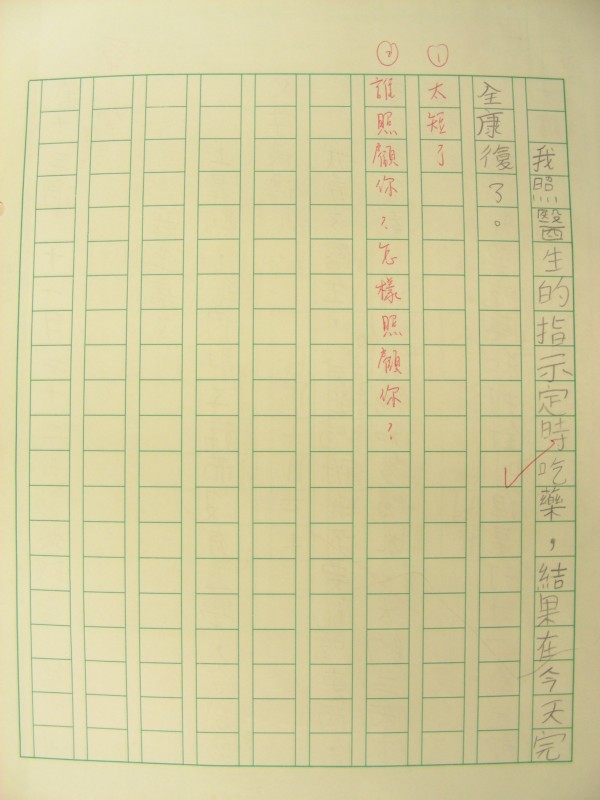 我照醫生的指示定時吃藥，結果在今天完
全康復了。
①太短了
②誰照顧你？怎樣照顧你？